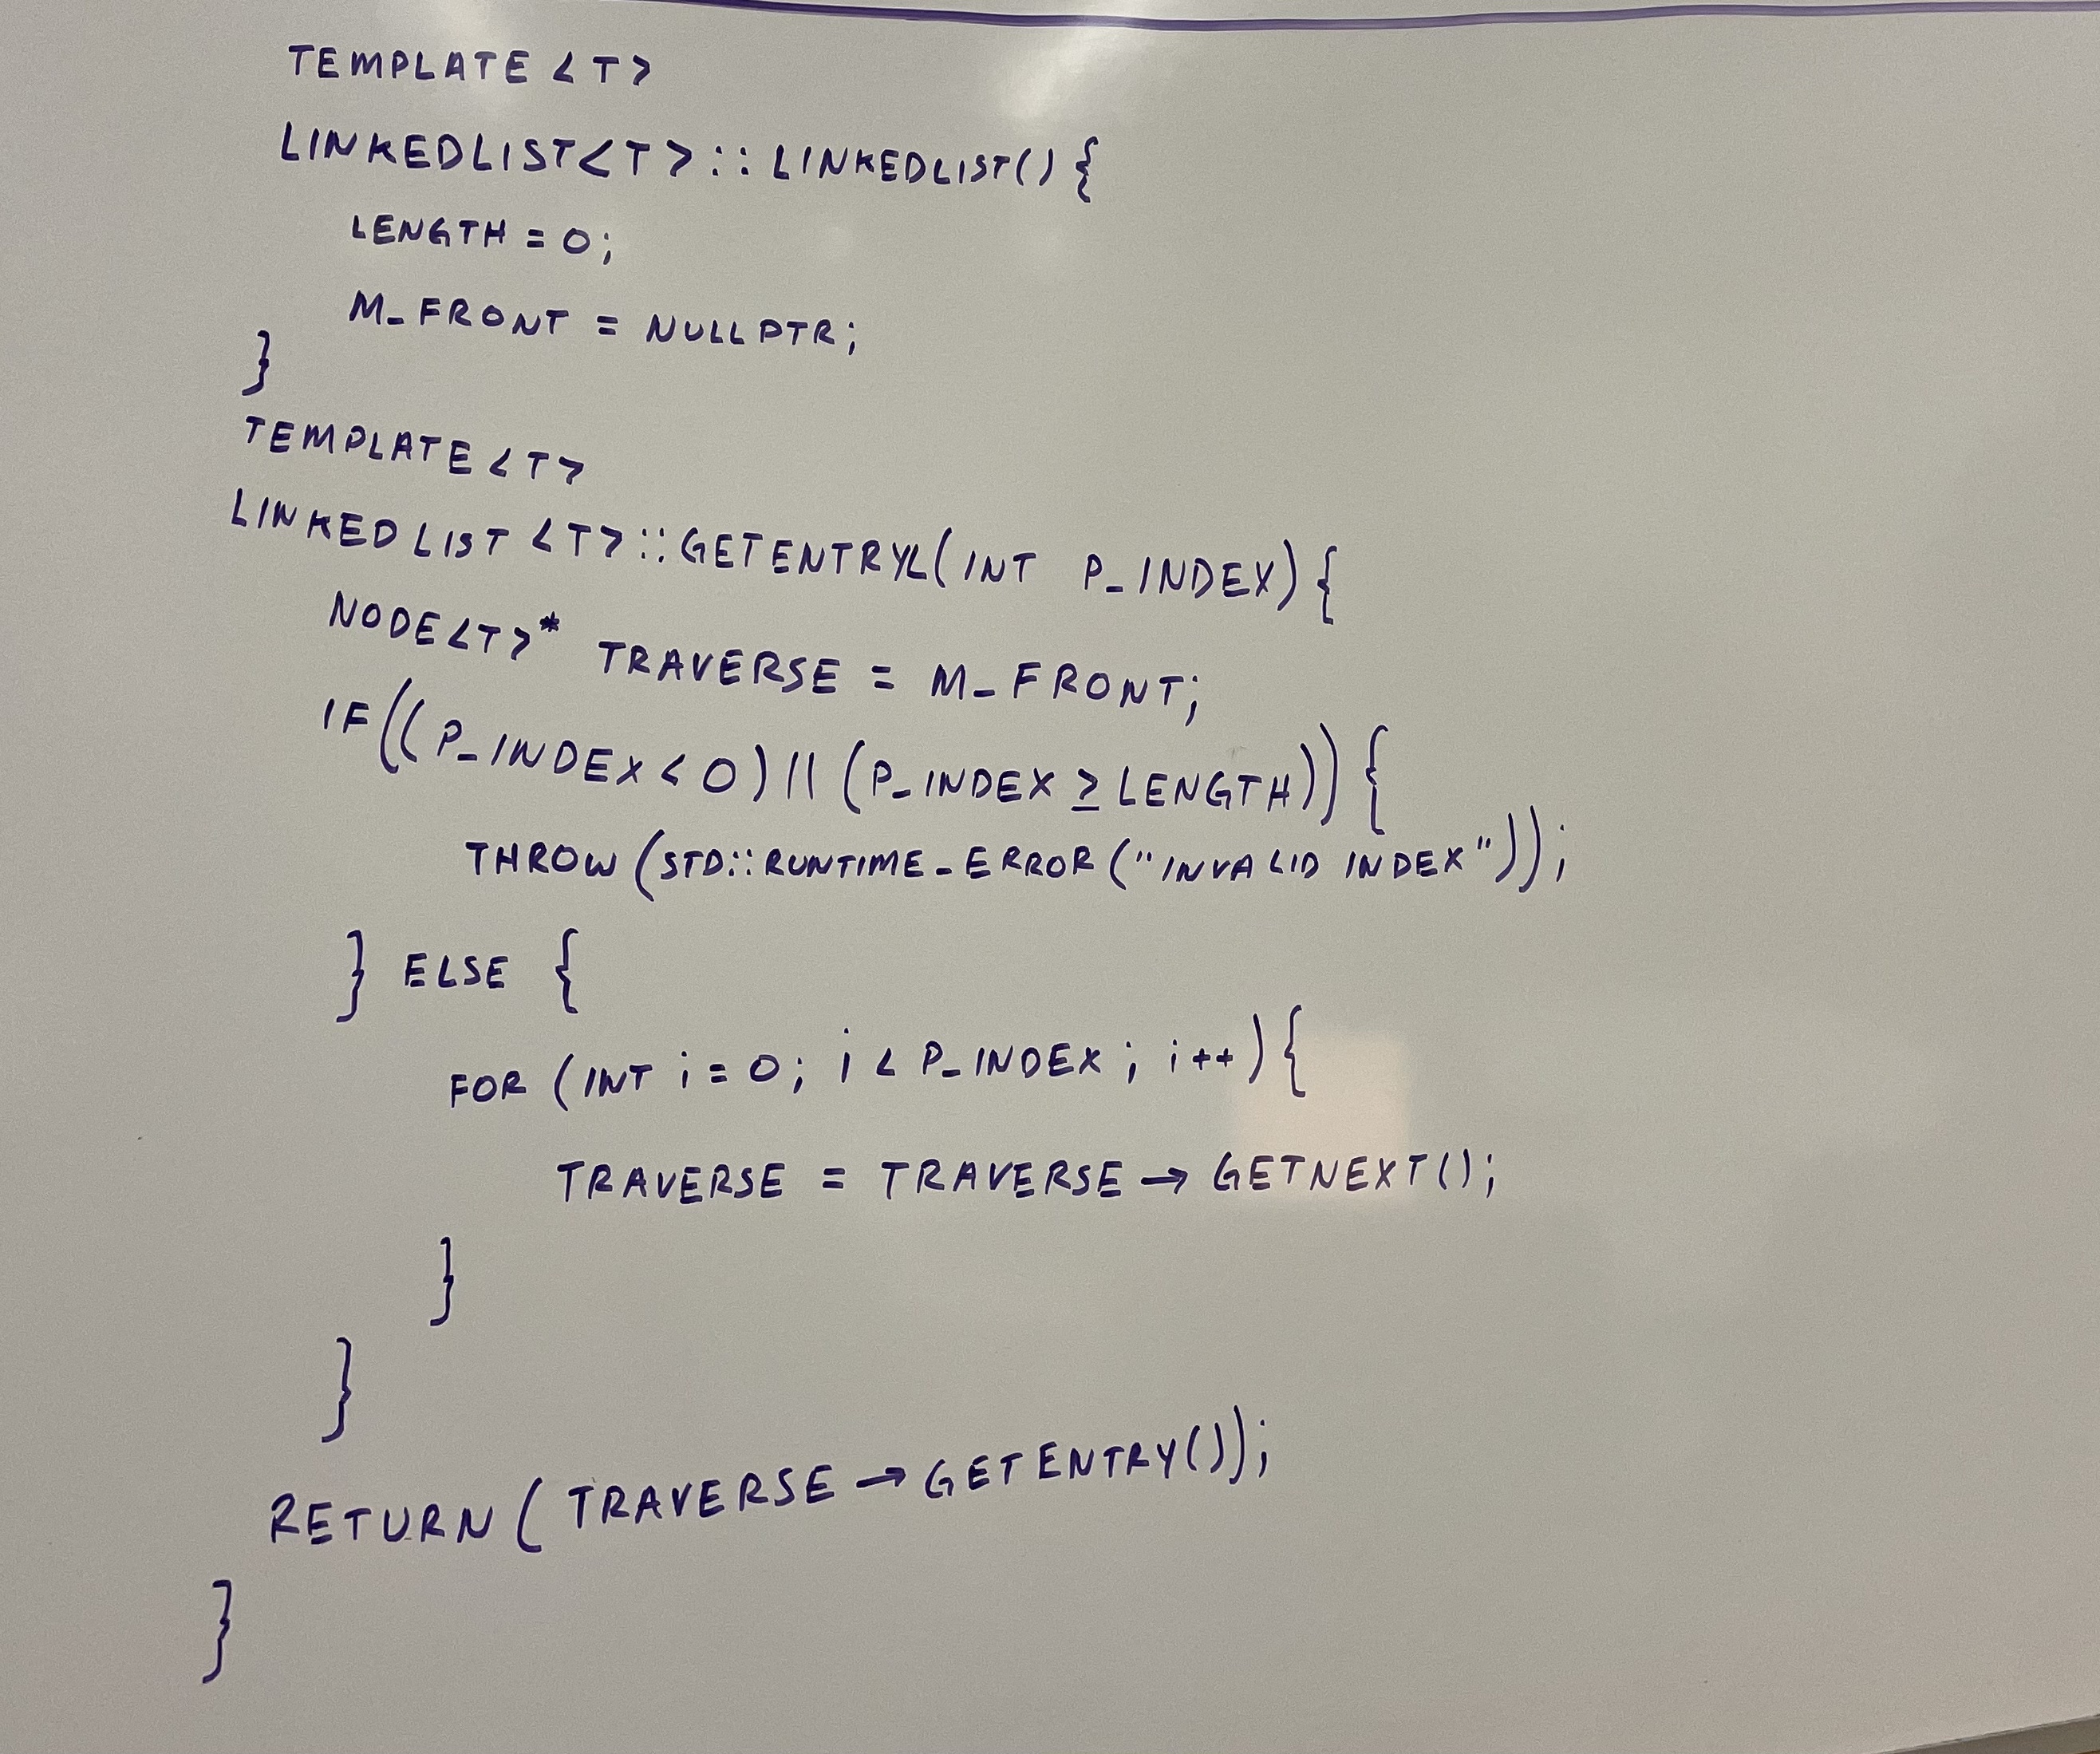 TEMPLATE <T>
LINKEDLIST<T>::LINKEDLIST(){
LENGTH = 0;
M_FRONT = NULLPTR;
}
TEMPLATE <T>
LINKEDLIST <T>::GETENTRYL(INT P_INDEX){
NODE<T>* TRAVERSE = M_FRONT;
IF((P_INDEX < 0) || (P_INDEX ≥ LENGTH)){
THROW (STD::RUNTIME_ERROR("INVALID INDEX"));
} ELSE {
FOR (INT i = 0; i < P_INDEX; i++){
TRAVERSE = TRAVERSE → GETNEXT();
}
}
RETURN (TRAVERSE → GETENTRY());
}